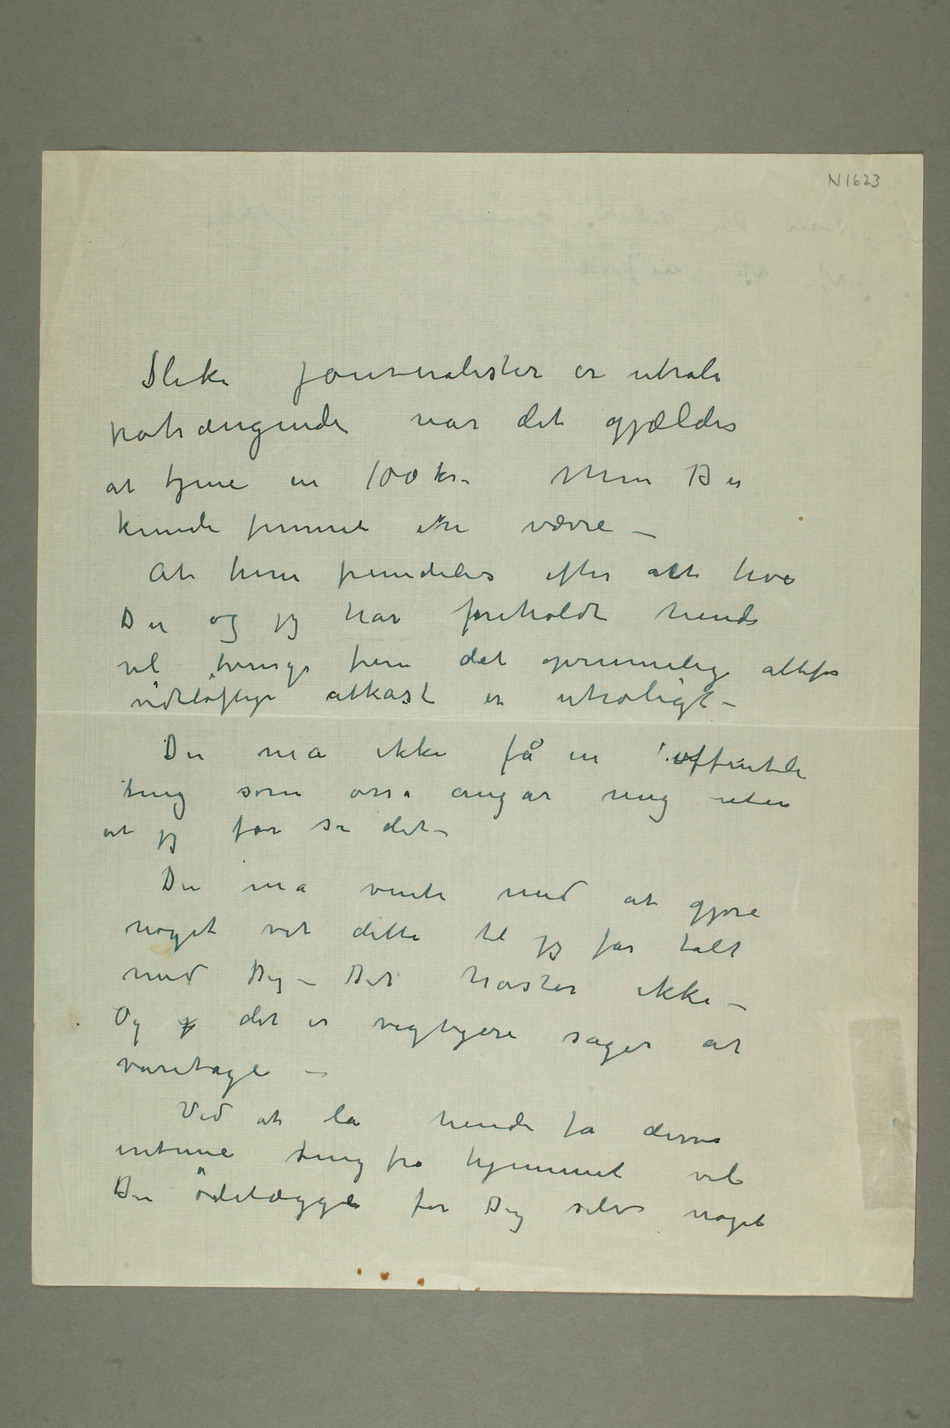 N 1623
Slike journalister er utrolig
påtrængende når det gjælder
at tjene en 100 kr. Men Du
kunde funnet etn værre –
At hun fremdeles efter alt hva
Du og jeg har foreholdt hende
vil bringe frem det oprinnelig altfor
vidtløftige utkast er utroligt –
Du må ikke få en offentli
ting som osså angår mig uten
at jeg før se det –
Du må vente med at gjøre
noget vet dette til jeg får talt
med Dig – Det haster ikke –
Og det er vigtigere sager at
varetage –
Ved at la hende få disse
intime ting fra hjemmet vil
Du ödelægge for Dig selv noget